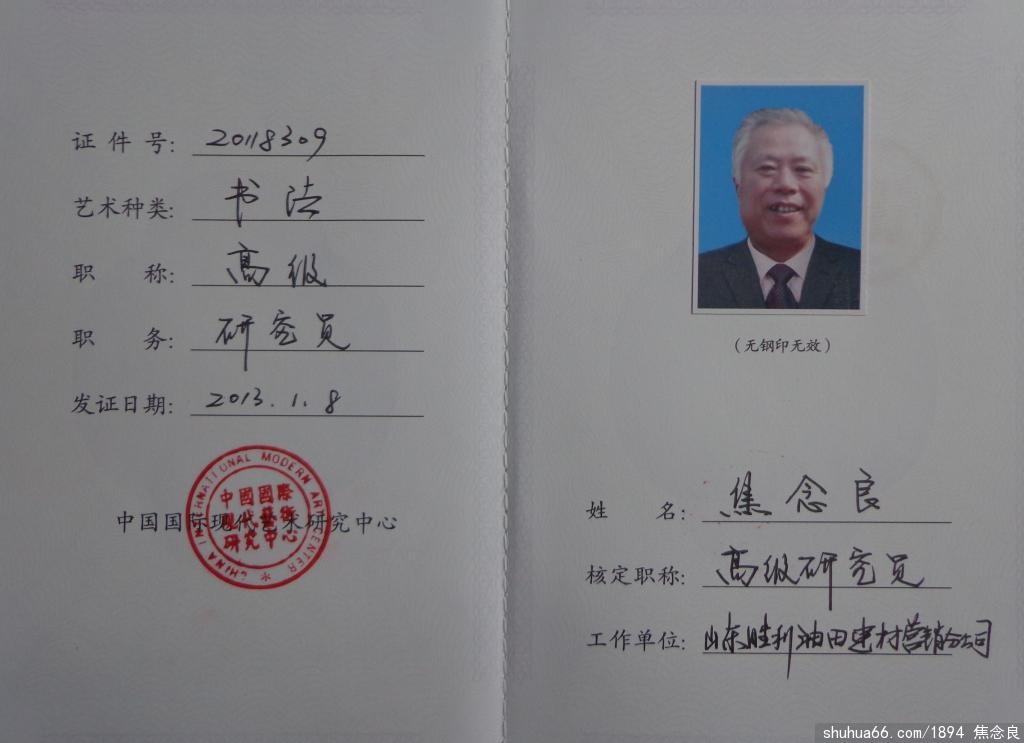 证件号: 20118309
艺术种类: 书法
职称: 高级
职务: 研究员
发证日期: 2013.1.8
中国国际现代艺术研究中心
CHINA INTERNATIONAL MODERN ART CENTER
中國國際
現代藝術
研究中心
(无钢印无效)
姓名: 焦念良
核定职称: 高级研究员
工作单位: 山东胜利油田建材营销公司
shuhua66.com/1894 焦念良